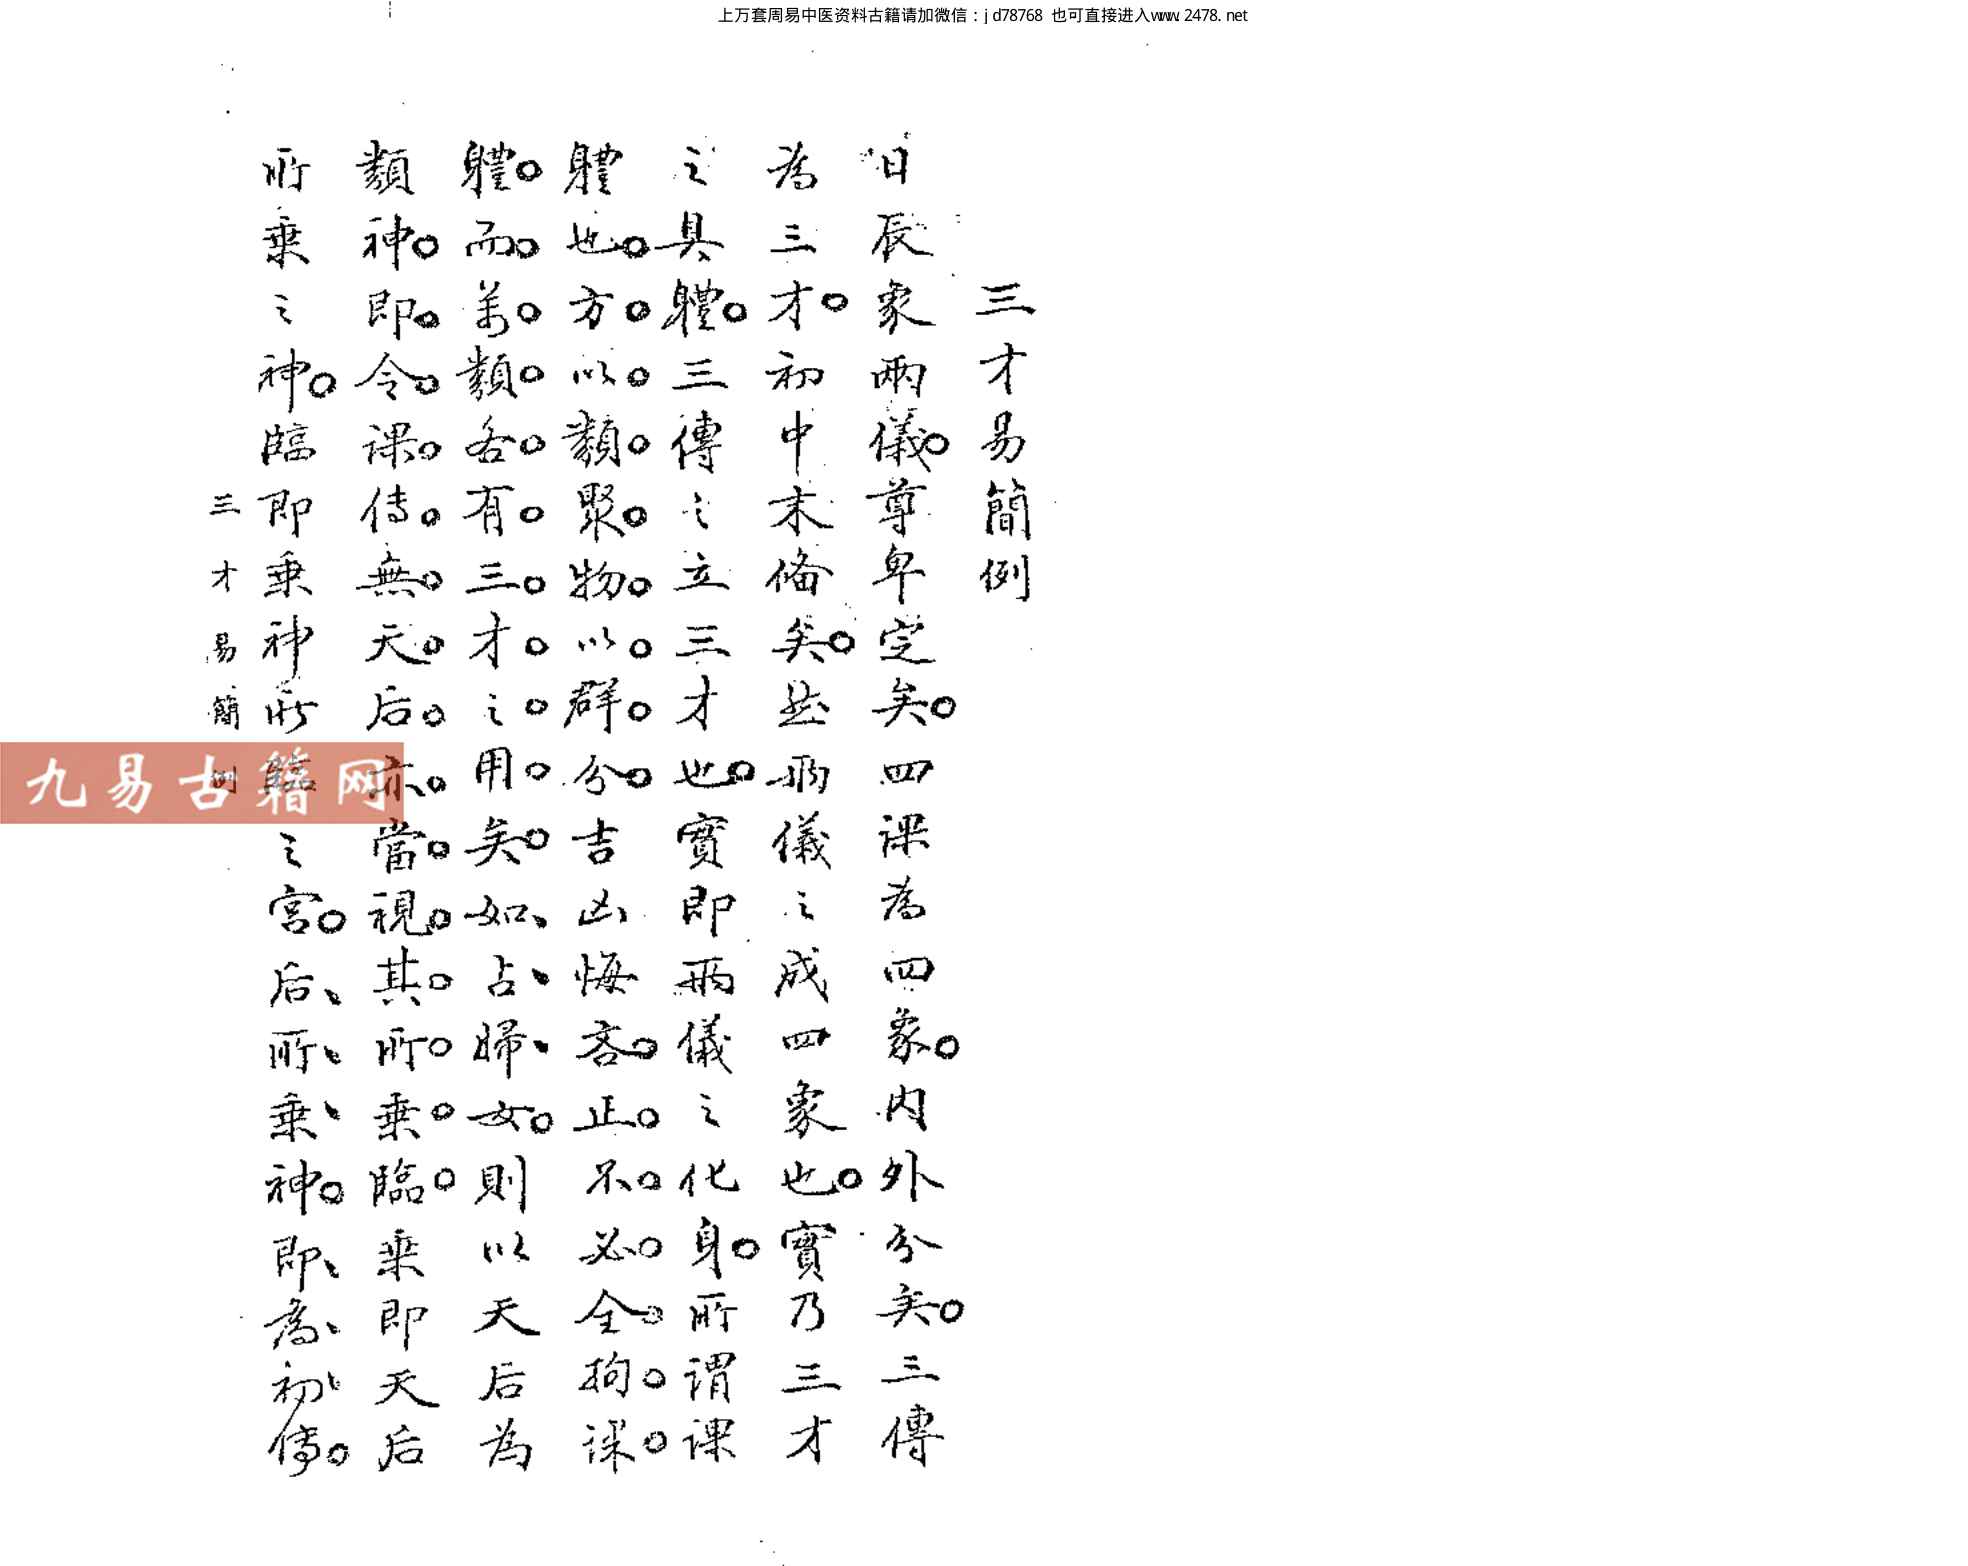 上万套周易中医资料古籍请加微信：jd78768 也可直接进入www.2478.net
三才易簡例
日辰象兩儀。尊卑定矣。四課為四象。内外分矣。三傳
為三才。初中末俻矣。然兩儀之成四象也。實乃三才
之具體。三傳之立三才也。實即兩儀之化身。所謂課
體也。方以類聚。物以群分。吉凶悔吝。正不必全拘課
體。而萬類各有三才之用矣。如占婦女。則以天后為
類神。即令課傳無天后。亦當視其所乗臨。乗即天后
所乗之神。臨即乗神所臨之宮。后所乗神。即為初傳。
三才易簡例
九易古籍网